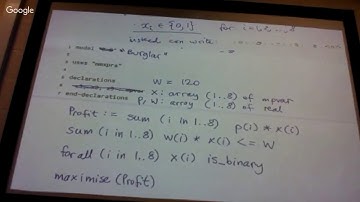 Google
x_i ∈ {0,1} for i=1,...,8
instead can write:
model "Burglar"
uses "mmxprs"
declarations W = 120
x: array (1..8) of mpvar
end-declarations P, W: array (1..8) of real
Profit := sum (i in 1..8) p(i) * x(i)
sum (i in 1..8) W(i) * x(i) <= W
forall (i in 1..8) x(i) is_binary
maximise (Profit)